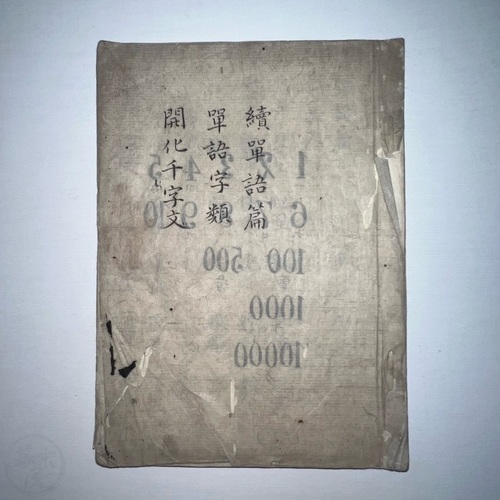 續單語篇
單語字類
開化千字文
1 2 3 4 5
6 7 8 9 10
100 500
1000
10000